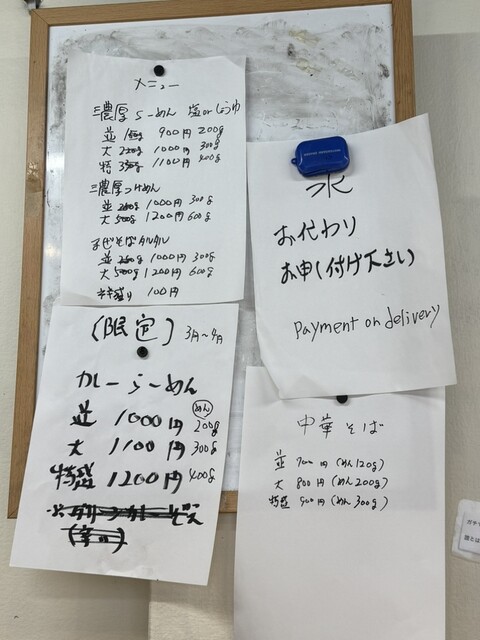 メニュー
濃厚らーめん 塩orしょうゆ
並 900円 200g
大 1000円 300g
特 1100円 400g
濃厚つけめん
並 1000円 300g
大 1200円 600g
まぜそばタルタル
並 1000円 300g
大 1200円 600g
大盛り 100円
水
お代わり
お申し付け下さい
payment on delivery
(限定) 3月~4月
カレーらーめん
並 1000円 めん 200g
大 1100円 300g
特盛 1200円 400g
中華そば
並 700円(めん120g)
大 800円(めん200g)
特盛 900円(めん300g)